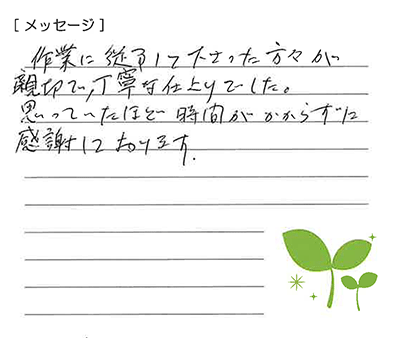 [ メッセージ ]
作業に従事して下さった方々が
親切で、丁寧な仕上りでした。
思っていたほど時間がかからずに
感謝しております.